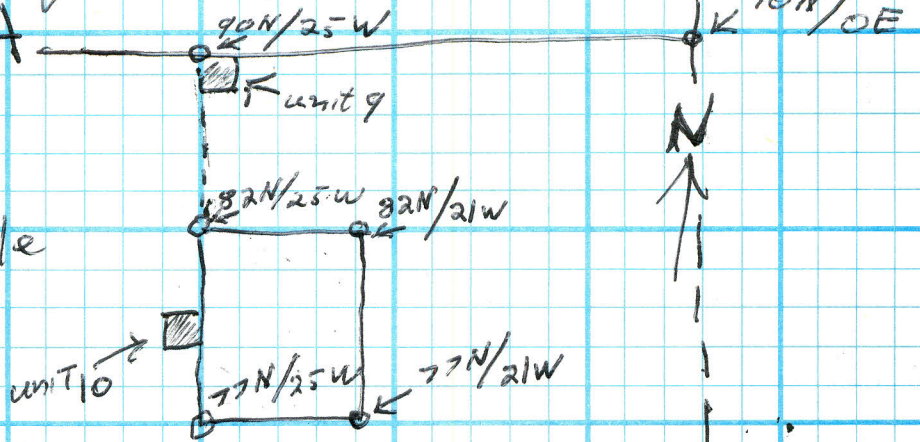 90N/25W
0E
unit 9
N
82N/25W
82N/21W
unit 10
77N/25W
77N/21W